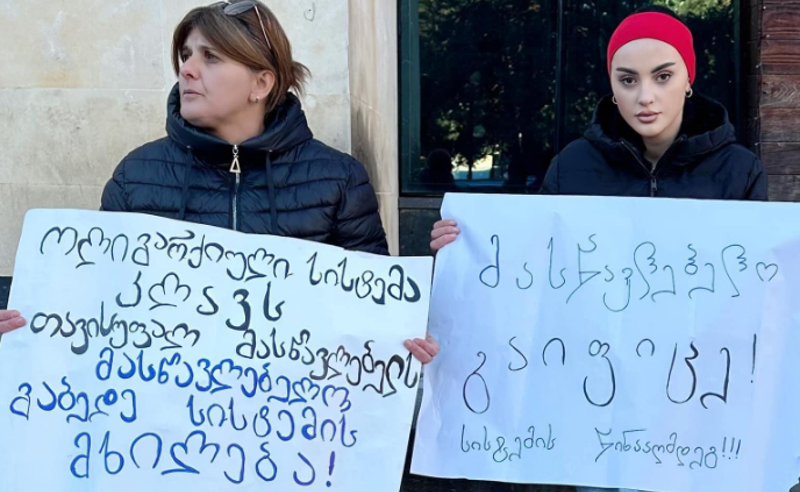 ოლიგარქიული სისტემა
კლავს
თავისუფალ მასწავლებელს
მასწავლებელო
გაბედე სისტემის
მხილება!
მასწავლებელო
გაიფიცე!
სისტემის წინააღმდეგ!!!